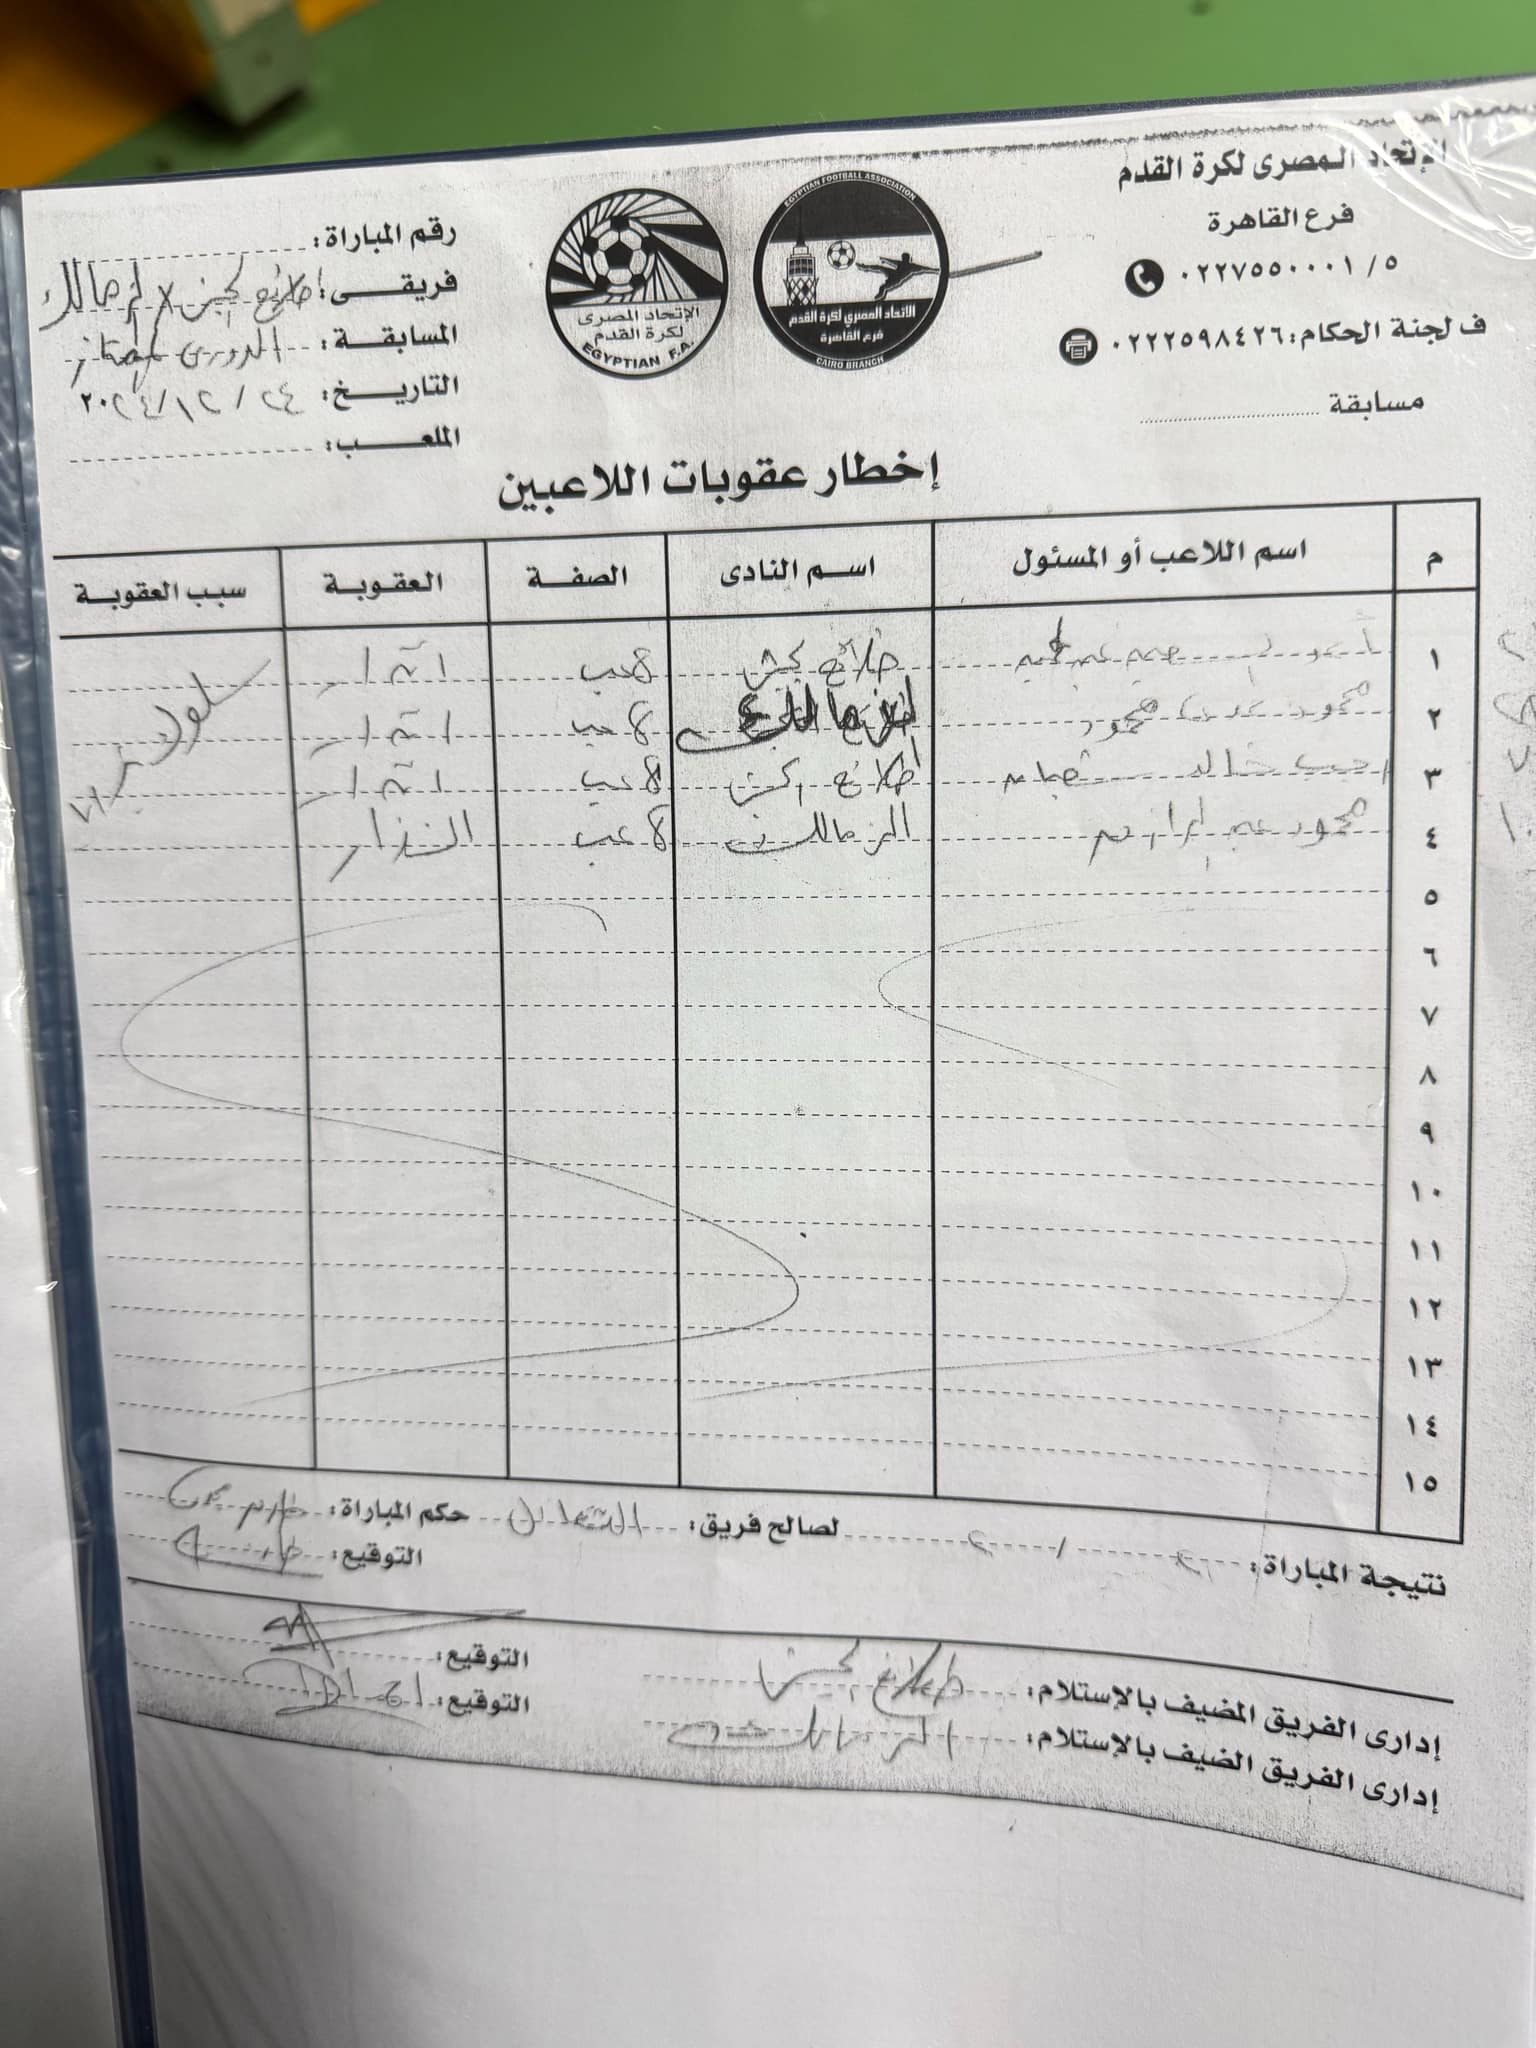 الإتحاد المصرى لكرة القدم
فرع القاهرة
٠٢٢٧٥٥٠٠٠١ / ٥
ف لجنة الحكام: ٠٢٢٢٥٩٨٤٢٦
مسابقة
EGYPTIAN FOOTBALL ASSOCIATION
الاتحاد المصري لكرة القدم
فرع القاهرة
CAIRO BRANCH
الإتحاد المصرى
لكرة القدم
EGYPTIAN F.A.
رقم المباراة:
فريقى: طلائع الجيش X الزمالك
المسابقة: الدورى الممتاز
التاريخ: ٢٤ / ١٢ / ٢٠٢٤
الملعب:
إخطار عقوبات اللاعبين
م اسم اللاعب أو المسئول اسم النادى الصفة العقوبة سبب العقوبة
١ طلائع الجيش لاعب انذار سلوك
٢ محمود محمود لاعب انذار
٣ خالد طلائع الجيش لاعب انذار
٤ محمود عبد الزمالك لاعب انذار
٥
٦
٧
٨
٩
١٠
١١
١٢
١٣
١٤
١٥
نتيجة المباراة: ٢ / ٢ لصالح فريق: التعادل حكم المباراة: طارق
التوقيع:
إدارى الفريق المضيف بالإستلام: طلائع الجيش التوقيع:
إدارى الفريق الضيف بالإستلام: الزمالك التوقيع: